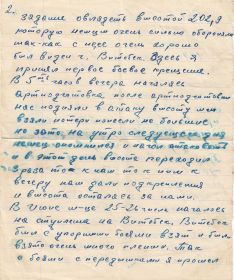 2.
задание овладеть высотой 202,9
которую немцы очень сильно обороняли
так-как с нее очень хорошо
был виден г. Витебск. Здесь я
принял первое боевое крещение.
В 5ть часов вечера началась
артподготовка, после артподготовки
нас подняли в атаку высоту мы
взяли потери понесли не большие
но зато, на утро следующего дня
немец опомнился и начал атаковать
и в этот день высота переходила
раза то к нам то к ним к
вечеру нам дали подкрепления
и высота осталась за нами.
В Июне м-це 25-26 числа началось
наступление на Витебск. Витебск
был с упорными боями взят и было
взято очень много пленных. Так
с боями с передышками я прошел